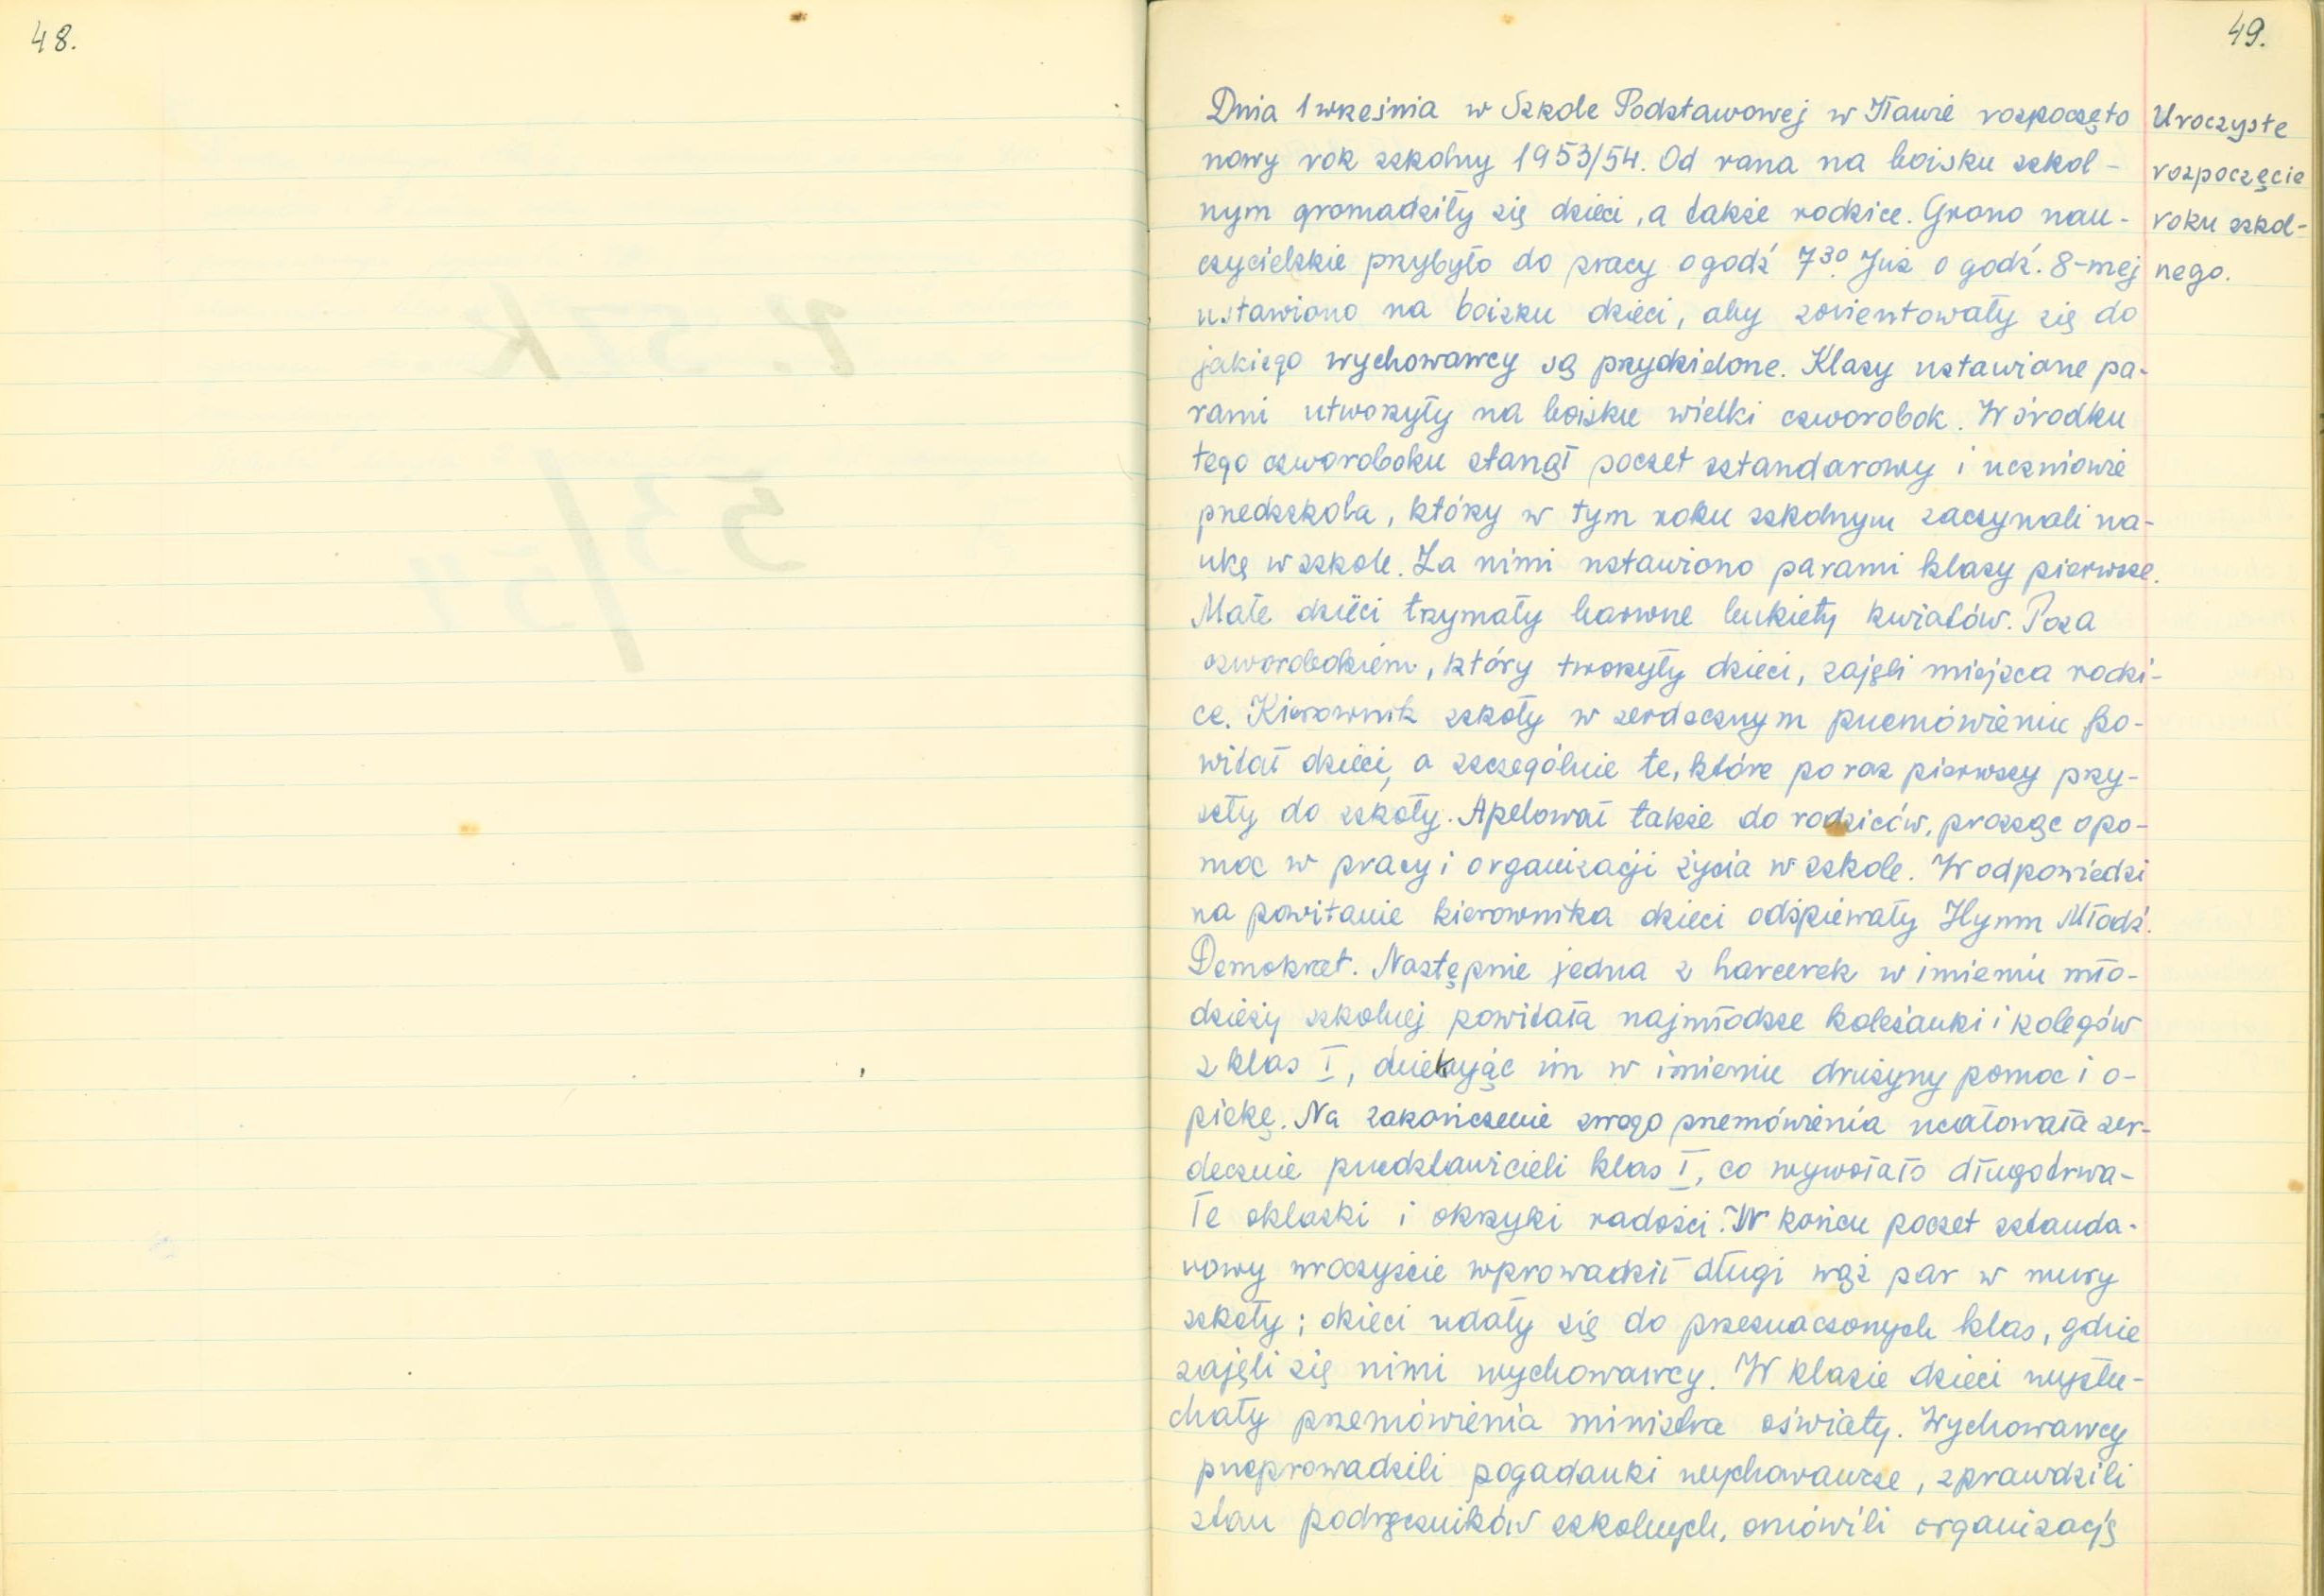 48.
49.
Uroczyste
rozpoczęcie
roku szkol-
nego.
Dnia 1 września w Szkole Podstawowej w Iławie rozpoczęto
nowy rok szkolny 1953/54. Od rana na boisku szkol-
nym gromadziły się dzieci, a także rodzice. Grono nau-
czycielskie przybyło do pracy o godź 7³⁰. Już o godź. 8-mej
ustawiono na boisku dzieci, aby zorientowały się do
jakiego wychowawcy są przydzielone. Klasy ustawione pa-
rami utworzyły na boisku wielki czworobok. W środku
tego czworoboku stanął poczet sztandarowy i uczniowie
przedszkola, którzy w tym roku szkolnym zaczynali na-
ukę w szkole. Za nimi ustawiono parami klasy pierwsze.
Małe dzieci trzymały barwne bukiety kwiatów. Poza
czworobokiem, który tworzyły dzieci, zajęli miejsca rodzi-
ce. Kierownik szkoły w serdecznym przemówieniu po-
witał dzieci, a szczególnie te, które po raz pierwszy przy-
szły do szkoły. Apelował także do rodziców, prosząc o po-
moc w pracy i organizacji życia w szkole. W odpowiedzi
na powitanie kierownika dzieci odśpiewały Hymn Młodź.
Demokrat. Następnie jedna z harcerek w imieniu mło-
dzieży szkolnej powitała najmłodsze koleżanki i kolegów
z klas I, dziekując im w imieniu drużyny pomoc i o-
piekę. Na zakończenie swego przemówienia ucałowała ser-
decznie przedstawicieli klas I, co wywołało długotrwa-
łe oklaski i okrzyki radości. W końcu poczet sztanda-
rowy uroczyście wprowadził długi wąż par w mury
szkoły; dzieci udały się do przeznaczonych klas, gdzie
zajęli się nimi wychowawcy. W klasie dzieci wysłu-
chały przemówienia ministra oświaty. Wychowawcy
przeprowadzili pogadanki wychowawcze, sprawdzili
stan podręczników szkolnych, omówili organizację